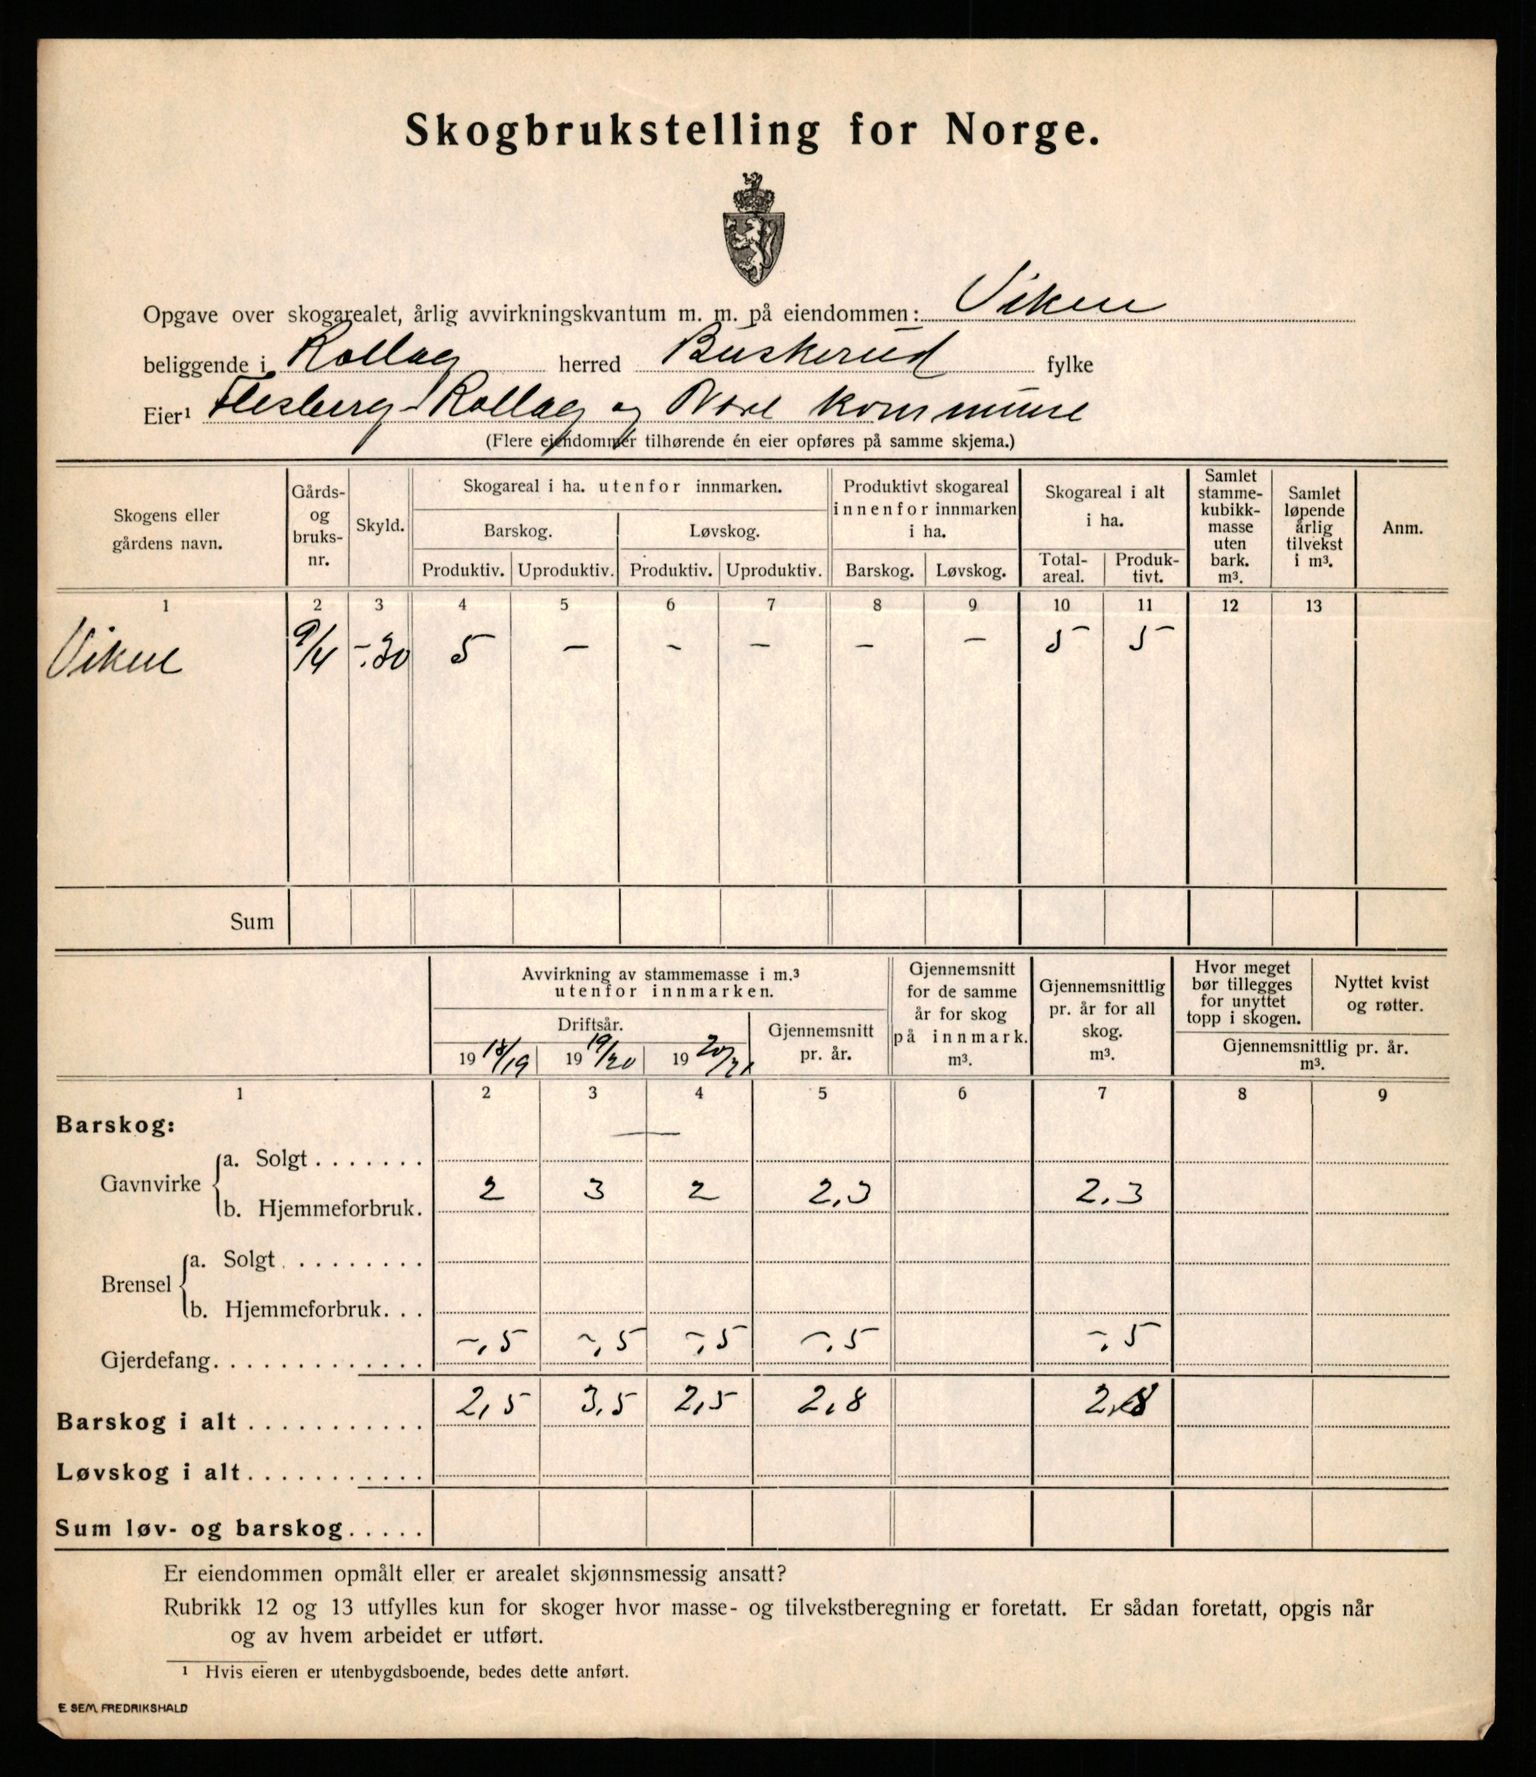 Skogbrukstelling for Norge.
Opgave over skogarealet, årlig avvirkningskvantum m. m. på eiendommen: Viken
beliggende i Rollag herred Buskerud fylke
Eier¹ Flesberg - Rollag og Nore kommune
(Flere eiendommer tilhørende én eier opføres på samme skjema.)
Skogens eller gårdens navn. Gårds- og bruks- nr. Skyld. Skogareal i ha. utenfor innmarken. Produktivt skogareal innenfor innmarken i ha. Skogareal i alt i ha. Samlet stamme- kubikk- masse uten bark. m³. Samlet løpende årlig tilvekst i m³. Anm.
Barskog. Løvskog.
Produktiv. Uproduktiv. Produktiv. Uproduktiv. Barskog. Løvskog. Total- areal. Produk- tivt.
1 2 3 4 5 6 7 8 9 10 11 12 13
Viken 9/4 -.30 5 – – – – – 5 5
Sum
Avvirkning av stammemasse i m.³ utenfor innmarken. Gjennemsnitt for de samme år for skog på innmark. m³. Gjennemsnittlig pr. år for all skog. m³. Hvor meget bør tillegges for unyttet topp i skogen. Nyttet kvist og røtter.
Driftsår. Gjennemsnitt pr. år. Gjennemsnittlig pr. år. m³.
19 18/19 19 19/20 19 20/21
1 2 3 4 5 6 7 8 9
Barskog: —
Gavnvirke a. Solgt . . . . . . .
b. Hjemmeforbruk. 2 3 2 2,3 2,3
Brensel a. Solgt . . . . . . . . .
b. Hjemmeforbruk. . .
Gjerdefang. . . . . . . . . . . . . -,5 -,5 -,5 -,5 -,5
Barskog i alt . . . . . . . . . . . 2,5 3,5 2,5 2,8 2,8
Løvskog i alt . . . . . . . . . . .
Sum løv- og barskog. . . . .
Er eiendommen opmålt eller er arealet skjønnsmessig ansatt?
Rubrikk 12 og 13 utfylles kun for skoger hvor masse- og tilvekstberegning er foretatt. Er sådan foretatt, opgis når
og av hvem arbeidet er utført.
¹ Hvis eieren er utenbygdsboende, bedes dette anført.
E SEM, FREDRIKSHALD